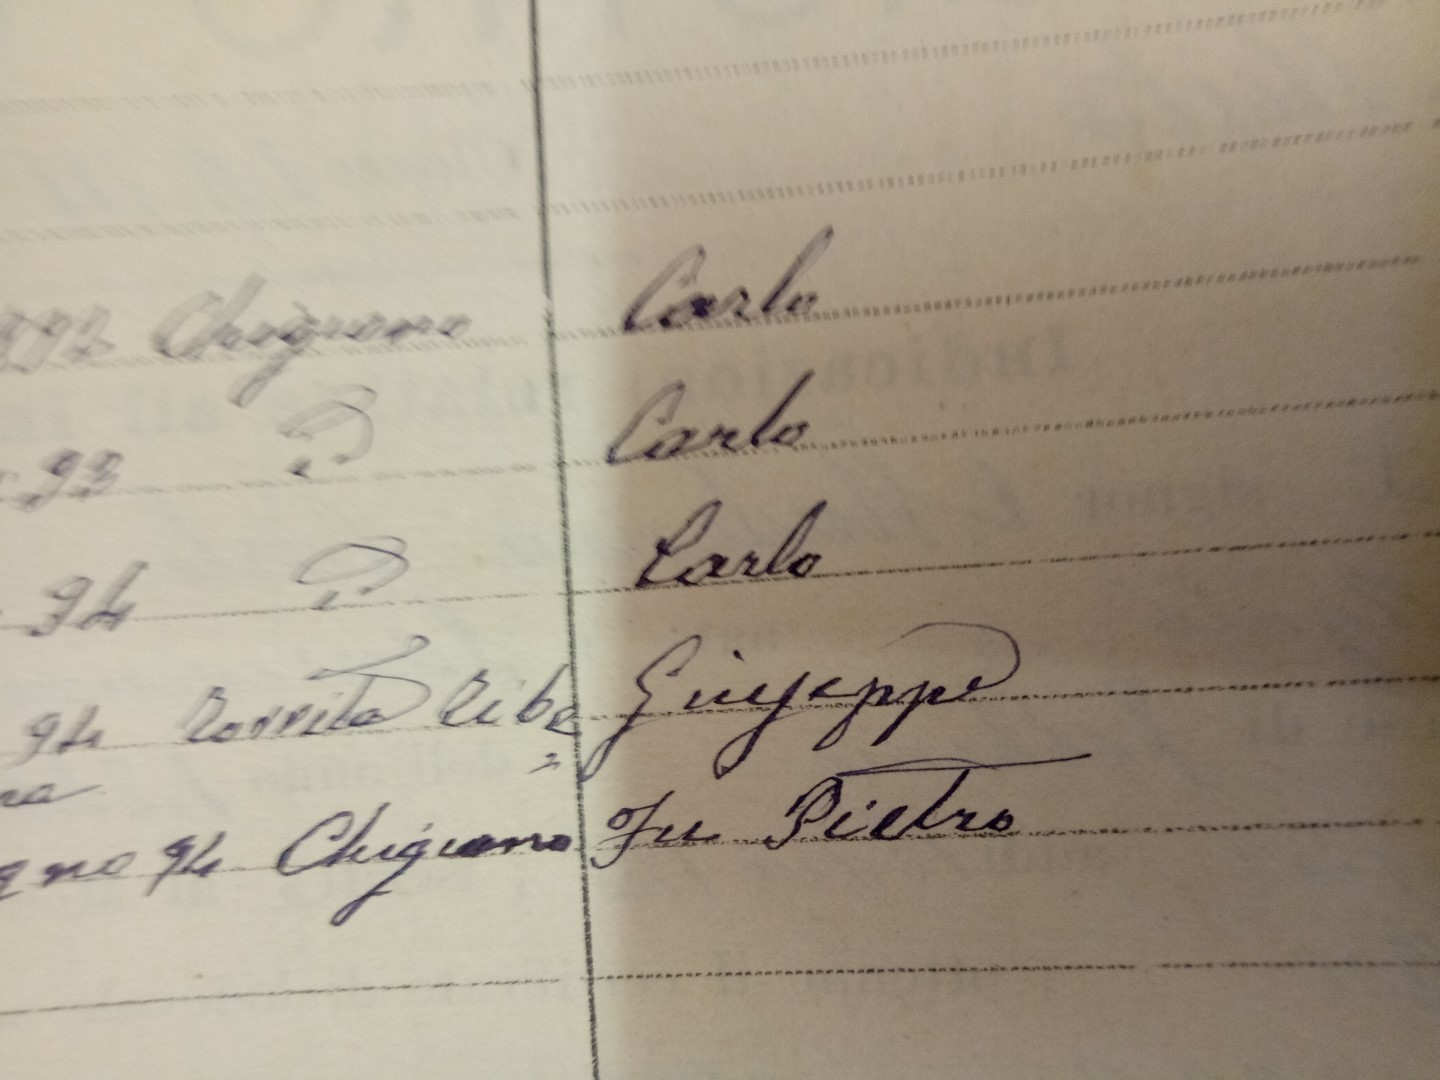 892 Chigiano Carlo
93 D Carlo
94 D Carlo
94 Torrita Tibe Giuseppe
na
gno 94 Chigiano Fu Pietro